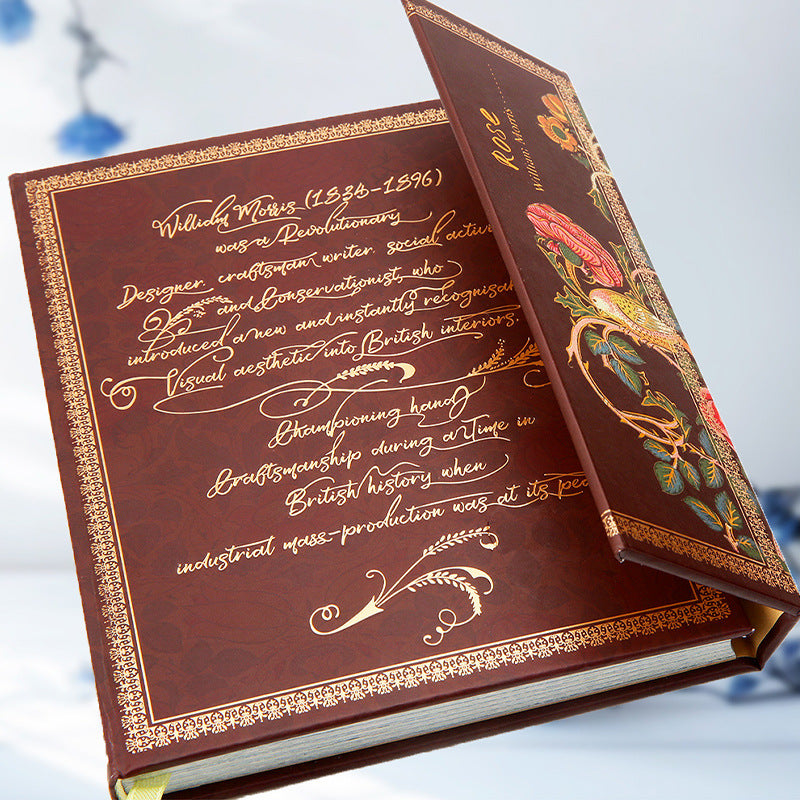 William Morris (1834-1896)
was a Revolutionary
Designer, craftsman, writer, social activi
and Conservationist, who
introduced a new and instantly recognisa
Visual aesthetic into British interiors.
Championing hand
Craftsmanship during a Time in
British history when
industrial mass-production was at its pea
Rose
William Morris